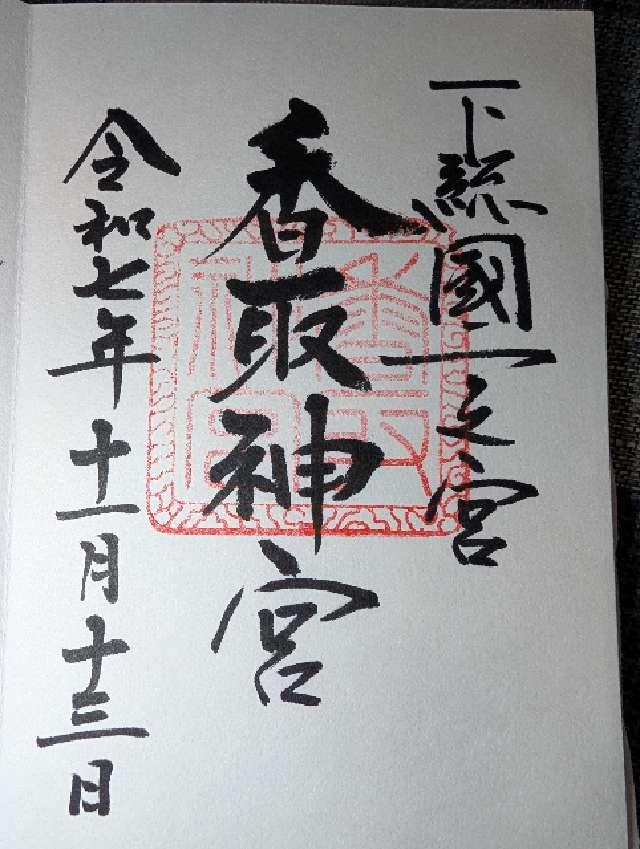 下総國一之宮
香取神宮
令和七年十一月十三日
香取
神宮